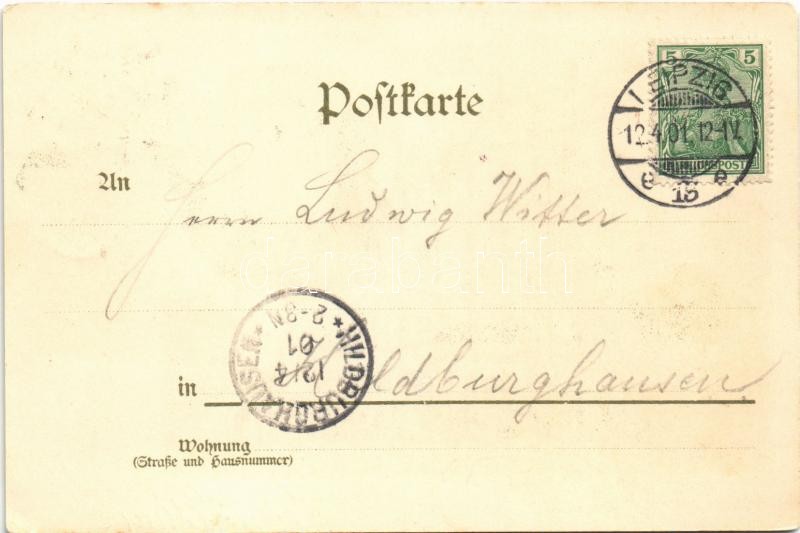 5 5
LEIPZIG
12.4.01. 12-1V.
e 13 e
REICHSPOST
Postkarte
An Herrn Ludwig Witter
darabanth
HILDBURGHAUSEN
12/4
01
2-3N
in Hildburghausen
Wohnung
(Straße und Hausnummer)